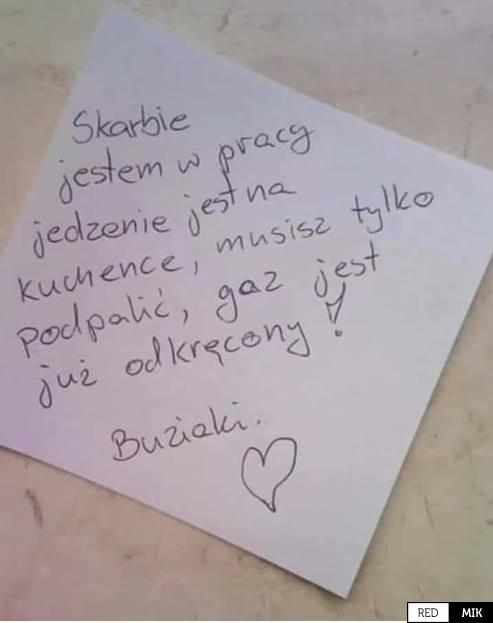 Skarbie
jestem w pracy
jedzenie jest na
kuchence, musisz tylko
podpalić, gaz jest
już odkręcony!
Buziaki..
RED MIK